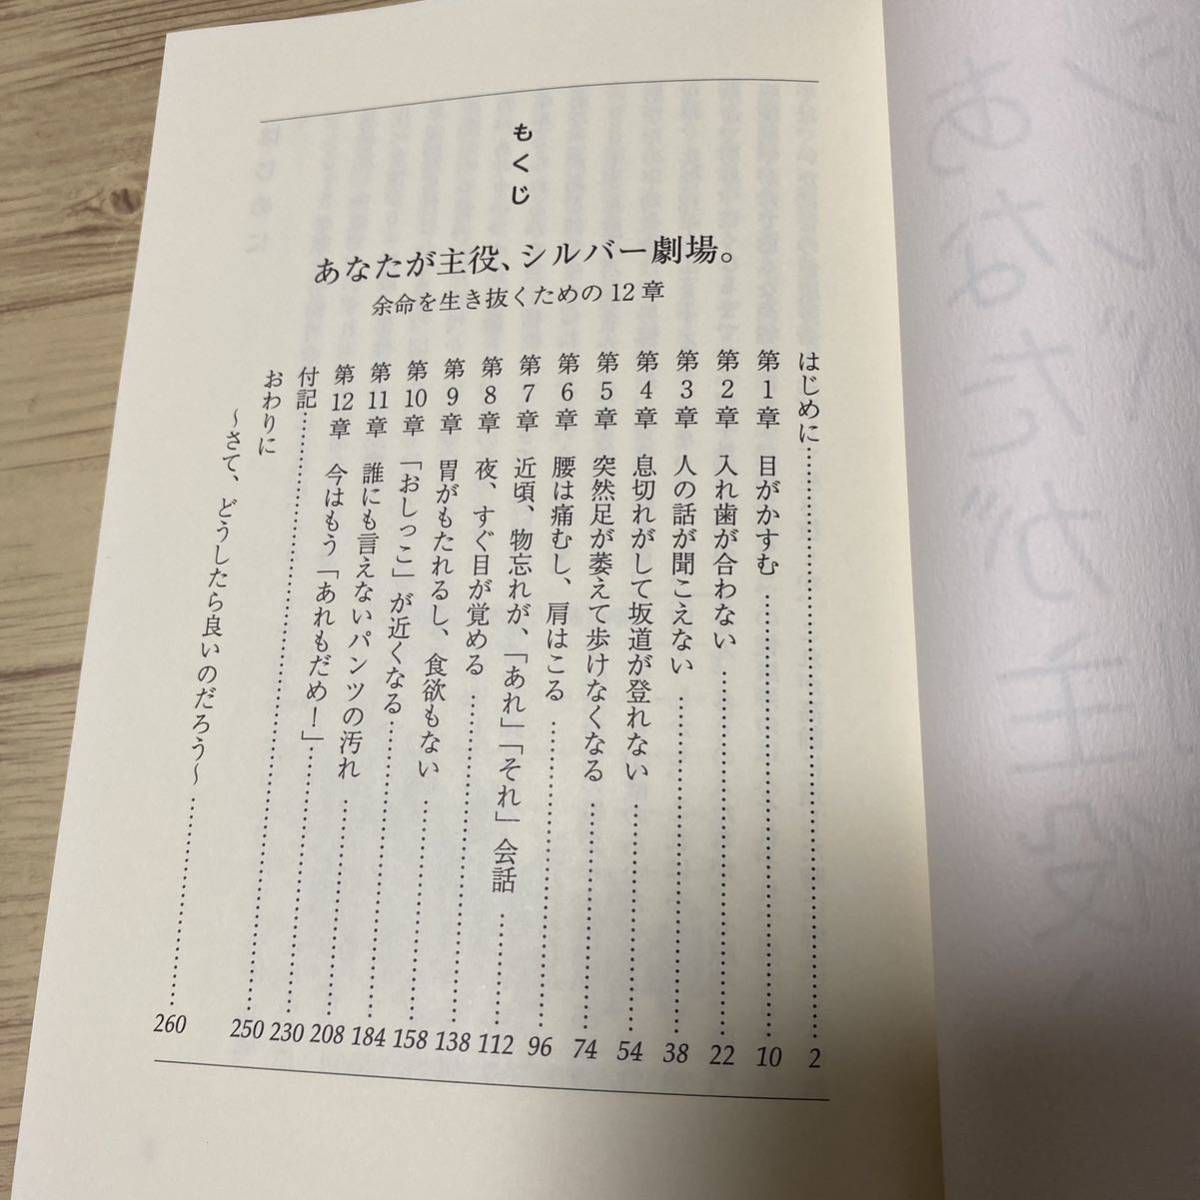 もくじ
あなたが主役、シルバー劇場。
余命を生き抜くための12章
はじめに……2
第1章 目がかすむ……10
第2章 入れ歯が合わない……22
第3章 人の話が聞こえない……38
第4章 息切れがして坂道が登れない……54
第5章 突然足が萎えて歩けなくなる……74
第6章 腰は痛むし、肩はこる……96
第7章 近頃、物忘れが、「あれ」「それ」会話……112
第8章 夜、すぐ目が覚める……138
第9章 胃がもたれるし、食欲もない……158
第10章 「おしっこ」が近くなる……184
第11章 誰にも言えないパンツの汚れ……208
第12章 今はもう「あれもだめ！」……230
付記……250
おわりに
〜さて、どうしたら良いのだろう〜……260
あなたが主役、